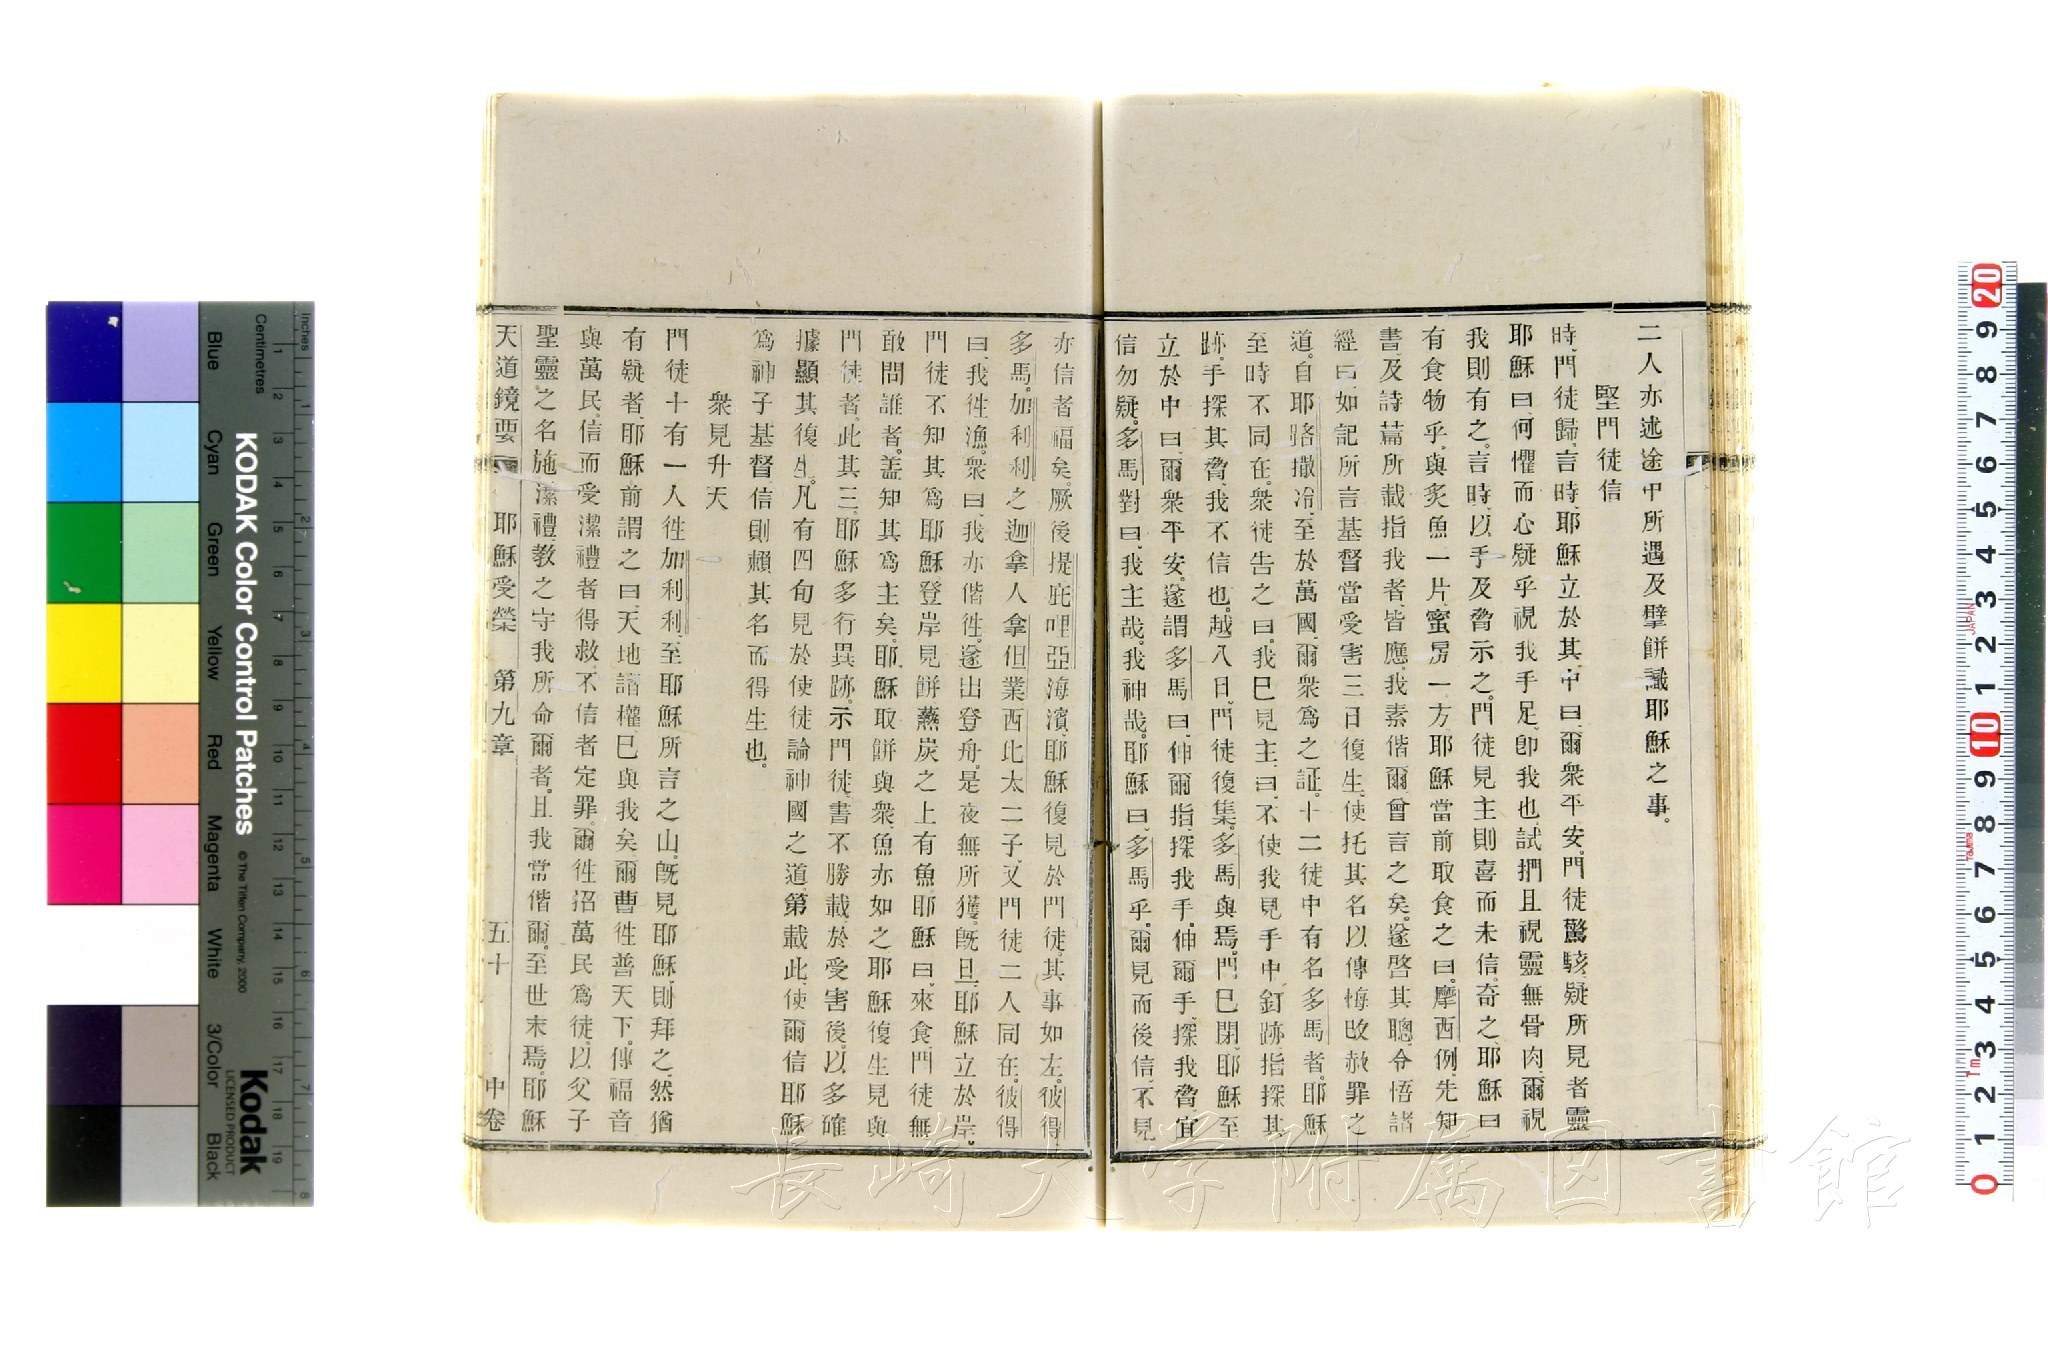 二人亦述途中所遇及擘餅識耶穌之事。
堅門徒信
時、門徒歸、言時、耶穌立於其中曰、爾衆平安、門徒驚駭、疑所見者靈
耶穌曰、何懼而心疑乎、視我手足、卽我也、試捫且視、靈無骨肉、爾視
我則有之。言時、以手及脅示之。門徒見主則喜、而未信、奇之、耶穌曰
有食物乎、與炙魚一片、蜜房一方、耶穌當前取食之曰、摩西例、先知
書、及詩篇所載指我者、皆應、我素偕爾曾言之矣。遂啓其聰、令悟諸
經曰、如記所言、基督當受害、三日復生、使托其名以傳悔改赦罪之
道。自耶路撒冷、至於萬國、爾衆爲之証。十二徒中有名多馬者、耶穌
至時不同在。衆徒告之曰、我已見主、曰、不使我見手中釘跡、指探其
跡、手探其脅、我不信也。越八日、門徒復集。多馬與焉。門已閉、耶穌至
立於中曰、爾衆平安。遂謂多馬曰、伸爾指、探我手、伸爾手、探我脅、宜
信勿疑。多馬對曰、我主哉、我神哉、耶穌曰、多馬乎、爾見而後信、不見
亦信者福矣。厥後提庇哩亞海濱、耶穌復見於門徒、其事如左。彼得
多馬、加利利之迦拿人拿但業、西比太二子、又門徒二人同在。彼得
曰、我徃漁。衆曰、我亦偕徃。遂出登舟。是夜無所獲。旣旦、耶穌立於岸。
門徒不知其爲耶穌、登岸見餅、爇炭之上有魚、耶穌曰、來食、門徒無
敢問誰者、蓋知其爲主矣。耶穌取餅與衆、魚亦如之、耶穌復生、見與
門徒者、此其三、耶穌多行異跡、示門徒、書不勝載、於受害後、以多確
據顯其復生、凡有四旬、見於使徒、論神國之道、第載此、使爾信耶穌
爲神子基督、信則賴其名而得生也。
衆見升天
門徒十有一人、徃加利利、至耶穌所言之山。旣見耶穌、則拜之、然猶
有疑者、耶穌前謂之曰、天地諸權、已與我矣、爾曹徃普天下。傳福音
與萬民、信而受潔禮者得救、不信者定罪、爾徃招萬民爲徒、以父子
聖靈之名、施潔禮、教之守我所命爾者。且我常偕爾。至世末焉。耶穌
天道鏡要 耶穌受榮 第九章 五十 中卷
KODAK Color Control Patches
© The Tiffen Company, 2000
Kodak
LICENSED PRODUCT
Inches
Centimetres
Blue
Cyan
Green
Yellow
Red
Magenta
White
3/Color
Black
JAPAN
長崎大学附属図書館